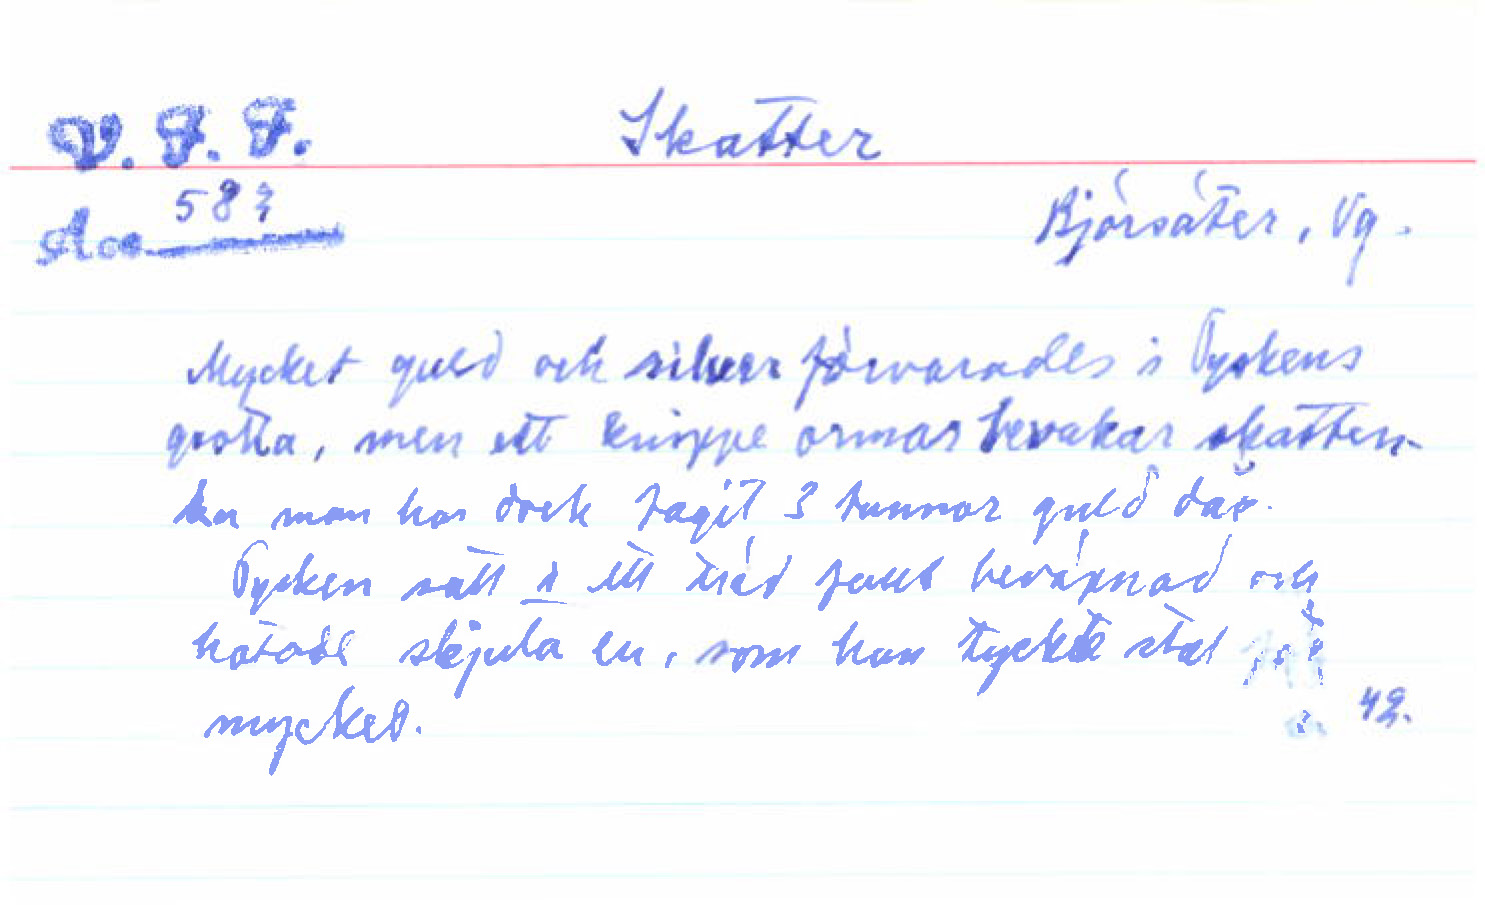 V. F. F.
Skatter
Acc 583
Björsäter, Vg.
Mycket guld och silver förvarades i Tyskens
grotta, men ett knippe ormar bevakar skatten.
man har dock tagit 3 tunnor guld där.
Tysken satt i ett träd fullt beväpnad och
hotade skjuta en, som han tyckte stal för
mycket.
42.